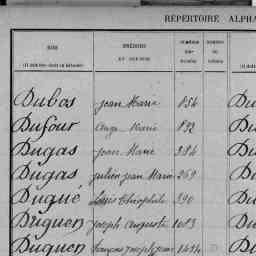 RÉPERTOIRE ALPHA
NOM
PRÉNOMS
Dubos Jean Marie 854 Du
Dufour Ange Marie 892 Du
Dugas Jean Marie 384 Du
Dugas Julien Jean Marie 269 Du
Dugué Louis Théophile 390 Du
Duguen Joseph Auguste 1083 Du
Duguen François Joseph Jean 1494 Du